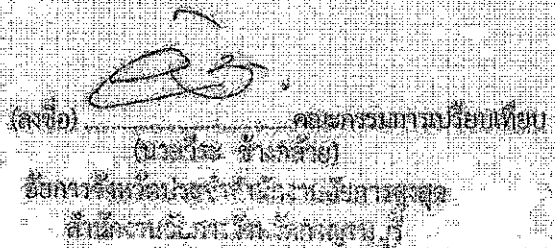 (ลงชื่อ) ........................................ คณะกรรมการเปรียบเทียบ
(นายวีระ ช้างกล้าย)
อัยการจังหวัดประจำสำนักงานอัยการสูงสุด
สำนักงานอัยการจังหวัดกาญจนบุรี